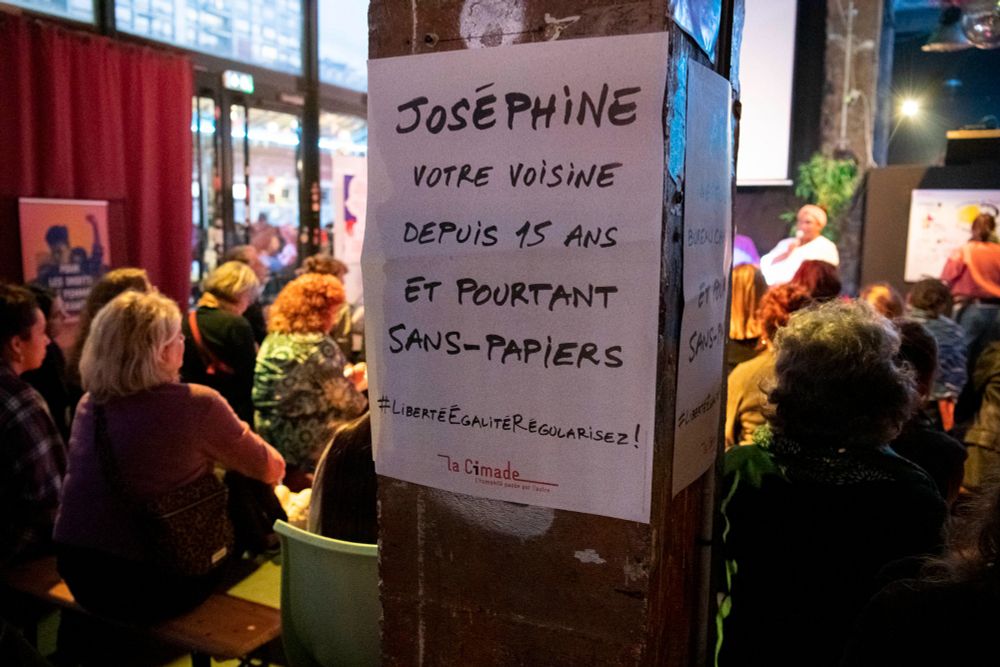 JOSÉPHINE
VOTRE VOISINE
DEPUIS 15 ANS
ET POURTANT
SANS-PAPIERS
#LIBERTÉÉGALITÉRÉGULARISEZ!
la Cimade
L'humanité passe par l'autre
BUREAU
ET POUR
SANS-PA